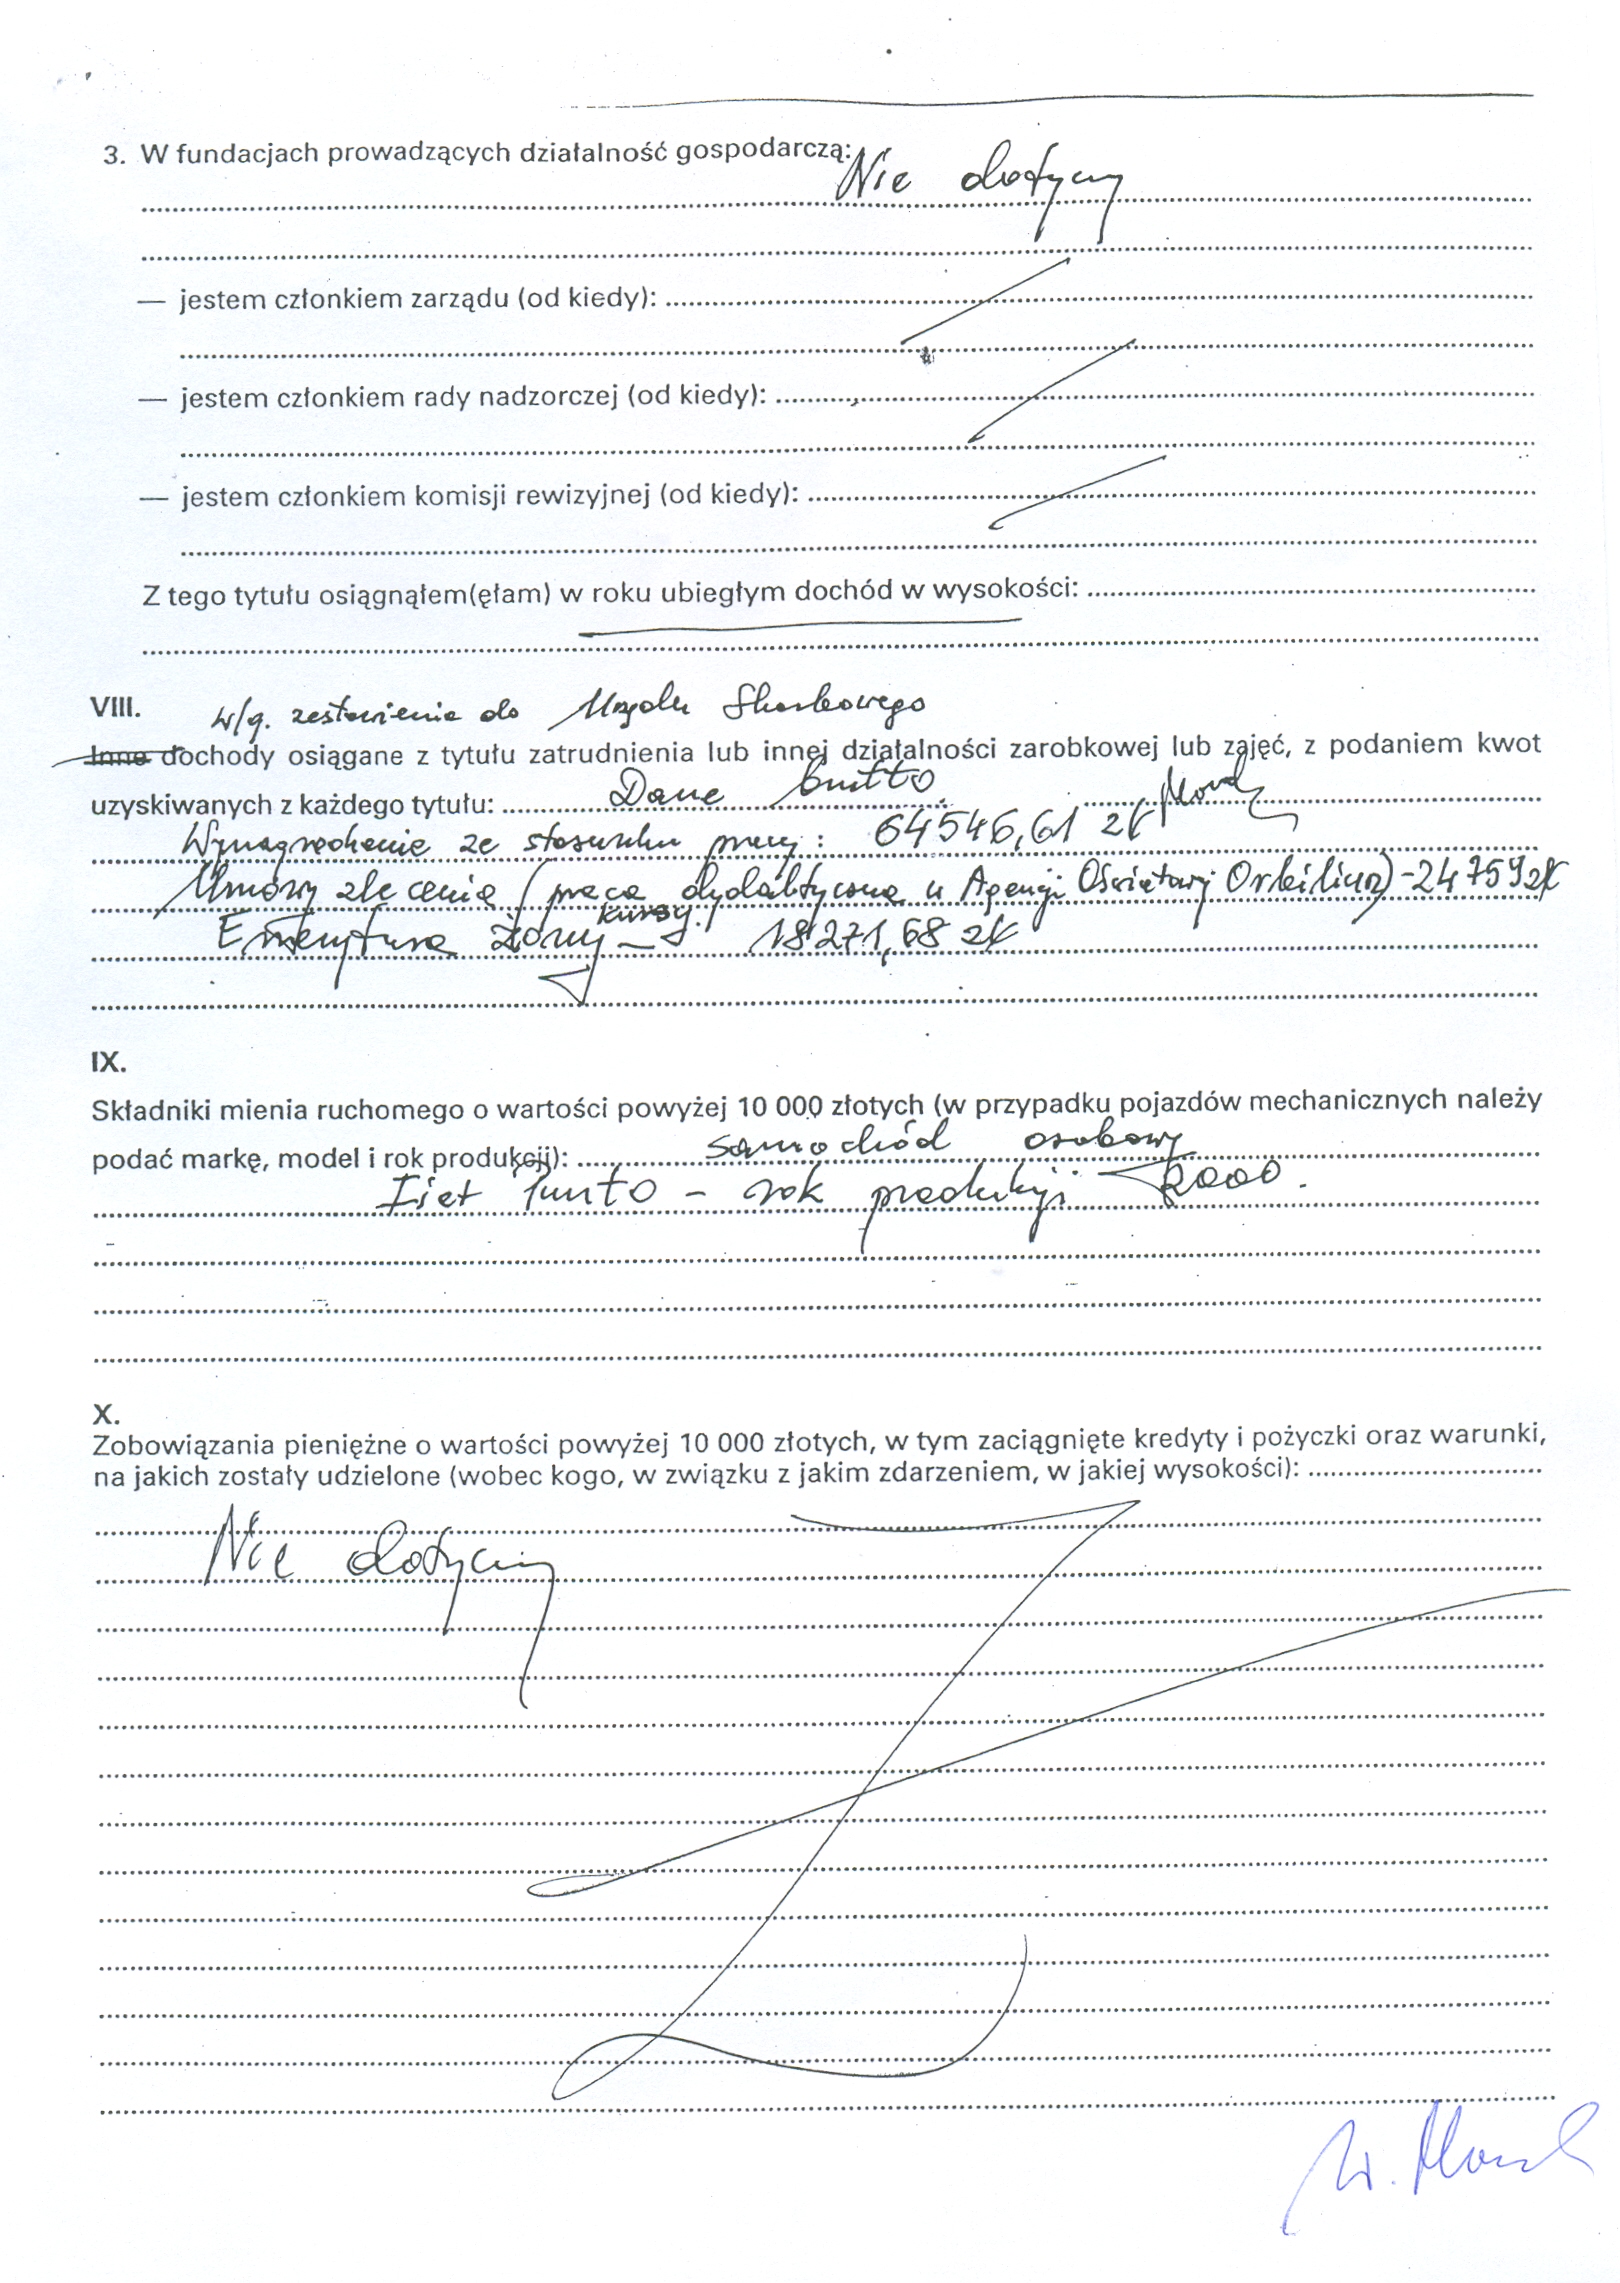 3. W fundacjach prowadzących działalność gospodarczą:
Nie dotyczy
— jestem członkiem zarządu (od kiedy):
— jestem członkiem rady nadzorczej (od kiedy):
— jestem członkiem komisji rewizyjnej (od kiedy):
Z tego tytułu osiągnąłem(ęłam) w roku ubiegłym dochód w wysokości:
VIII. w/g. zestawienia do Urzędu Skarbowego
Inne dochody osiągane z tytułu zatrudnienia lub innej działalności zarobkowej lub zajęć, z podaniem kwot
uzyskiwanych z każdego tytułu: Dane brutto.
Wynagrodzenie ze stosunku pracy: 64546,61 zł
Umowy zlecenia (praca dydaktyczna w Agencji Oświatowej Orbilius) - 24759 zł
kursy.
Emerytura żony - 18271,68 zł
IX.
Składniki mienia ruchomego o wartości powyżej 10 000 złotych (w przypadku pojazdów mechanicznych należy
podać markę, model i rok produkcji): samochód osobowy
Fiat Punto - rok produkcji 2000.
X.
Zobowiązania pieniężne o wartości powyżej 10 000 złotych, w tym zaciągnięte kredyty i pożyczki oraz warunki,
na jakich zostały udzielone (wobec kogo, w związku z jakim zdarzeniem, w jakiej wysokości):
Nie dotyczy